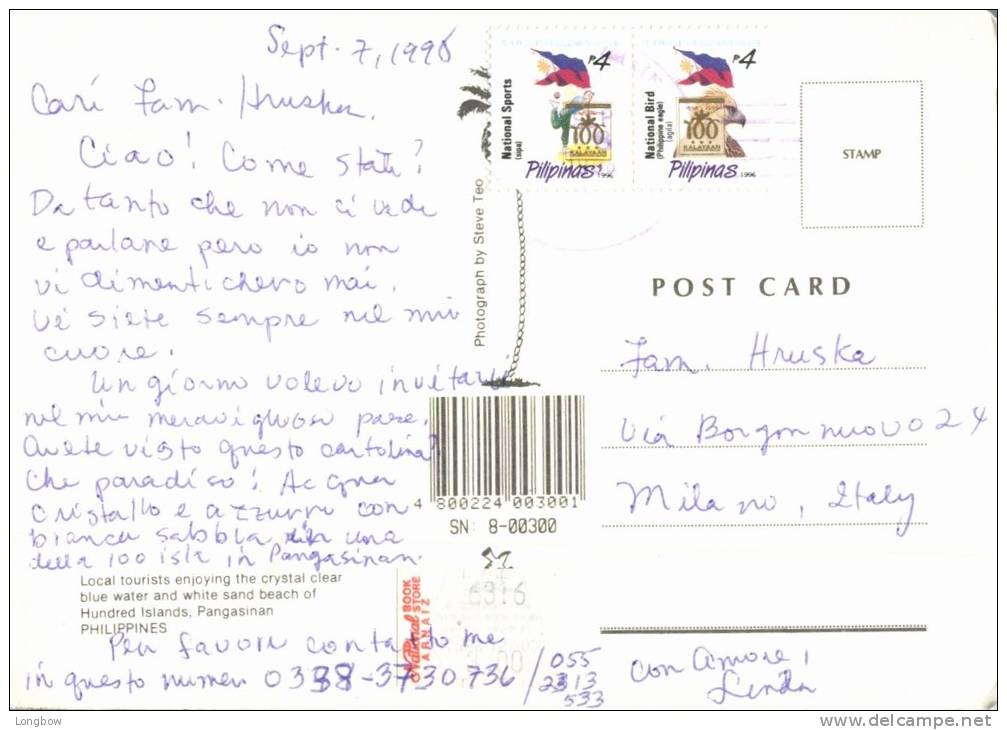 Sept. 7, 1996
Cari Fam. Hruska,
Ciao! Come stati?
Da tanto che non ci vede
e parlane pero io non
vi dimentichero mai,
vi siete sempre nel miu
cuore.
Un giorno volevo invitarvi
nel miu meraviglioso paese.
Avete visto questo cartolina?
Che paradiso! Acqua
cristallo e azzurro con
bianca sabbia in una
della 100 isla in Pangasinan.
Local tourists enjoying the crystal clear
blue water and white sand beach of
Hundred Islands, Pangasinan
PHILIPPINES
Per favore contatto me
in questo numero 0338-3730736 / 055
2313
533
con amore,
Linda
Photograph by Steve Teo
National Sports
(sipa)
P4
100
KALAYAAN
Pilipinas 1996
National Bird
(Philippine eagle)
(agila)
P4
100
KALAYAAN
Pilipinas 1996
STAMP
POST CARD
Fam. Hruska
Via Borgonnuovo 24
Milano, Italy
4 800224 003001
SN: 8-00300
6316
National BOOK
STORE
ARNAIZ
Longbow
www.delcampe.net